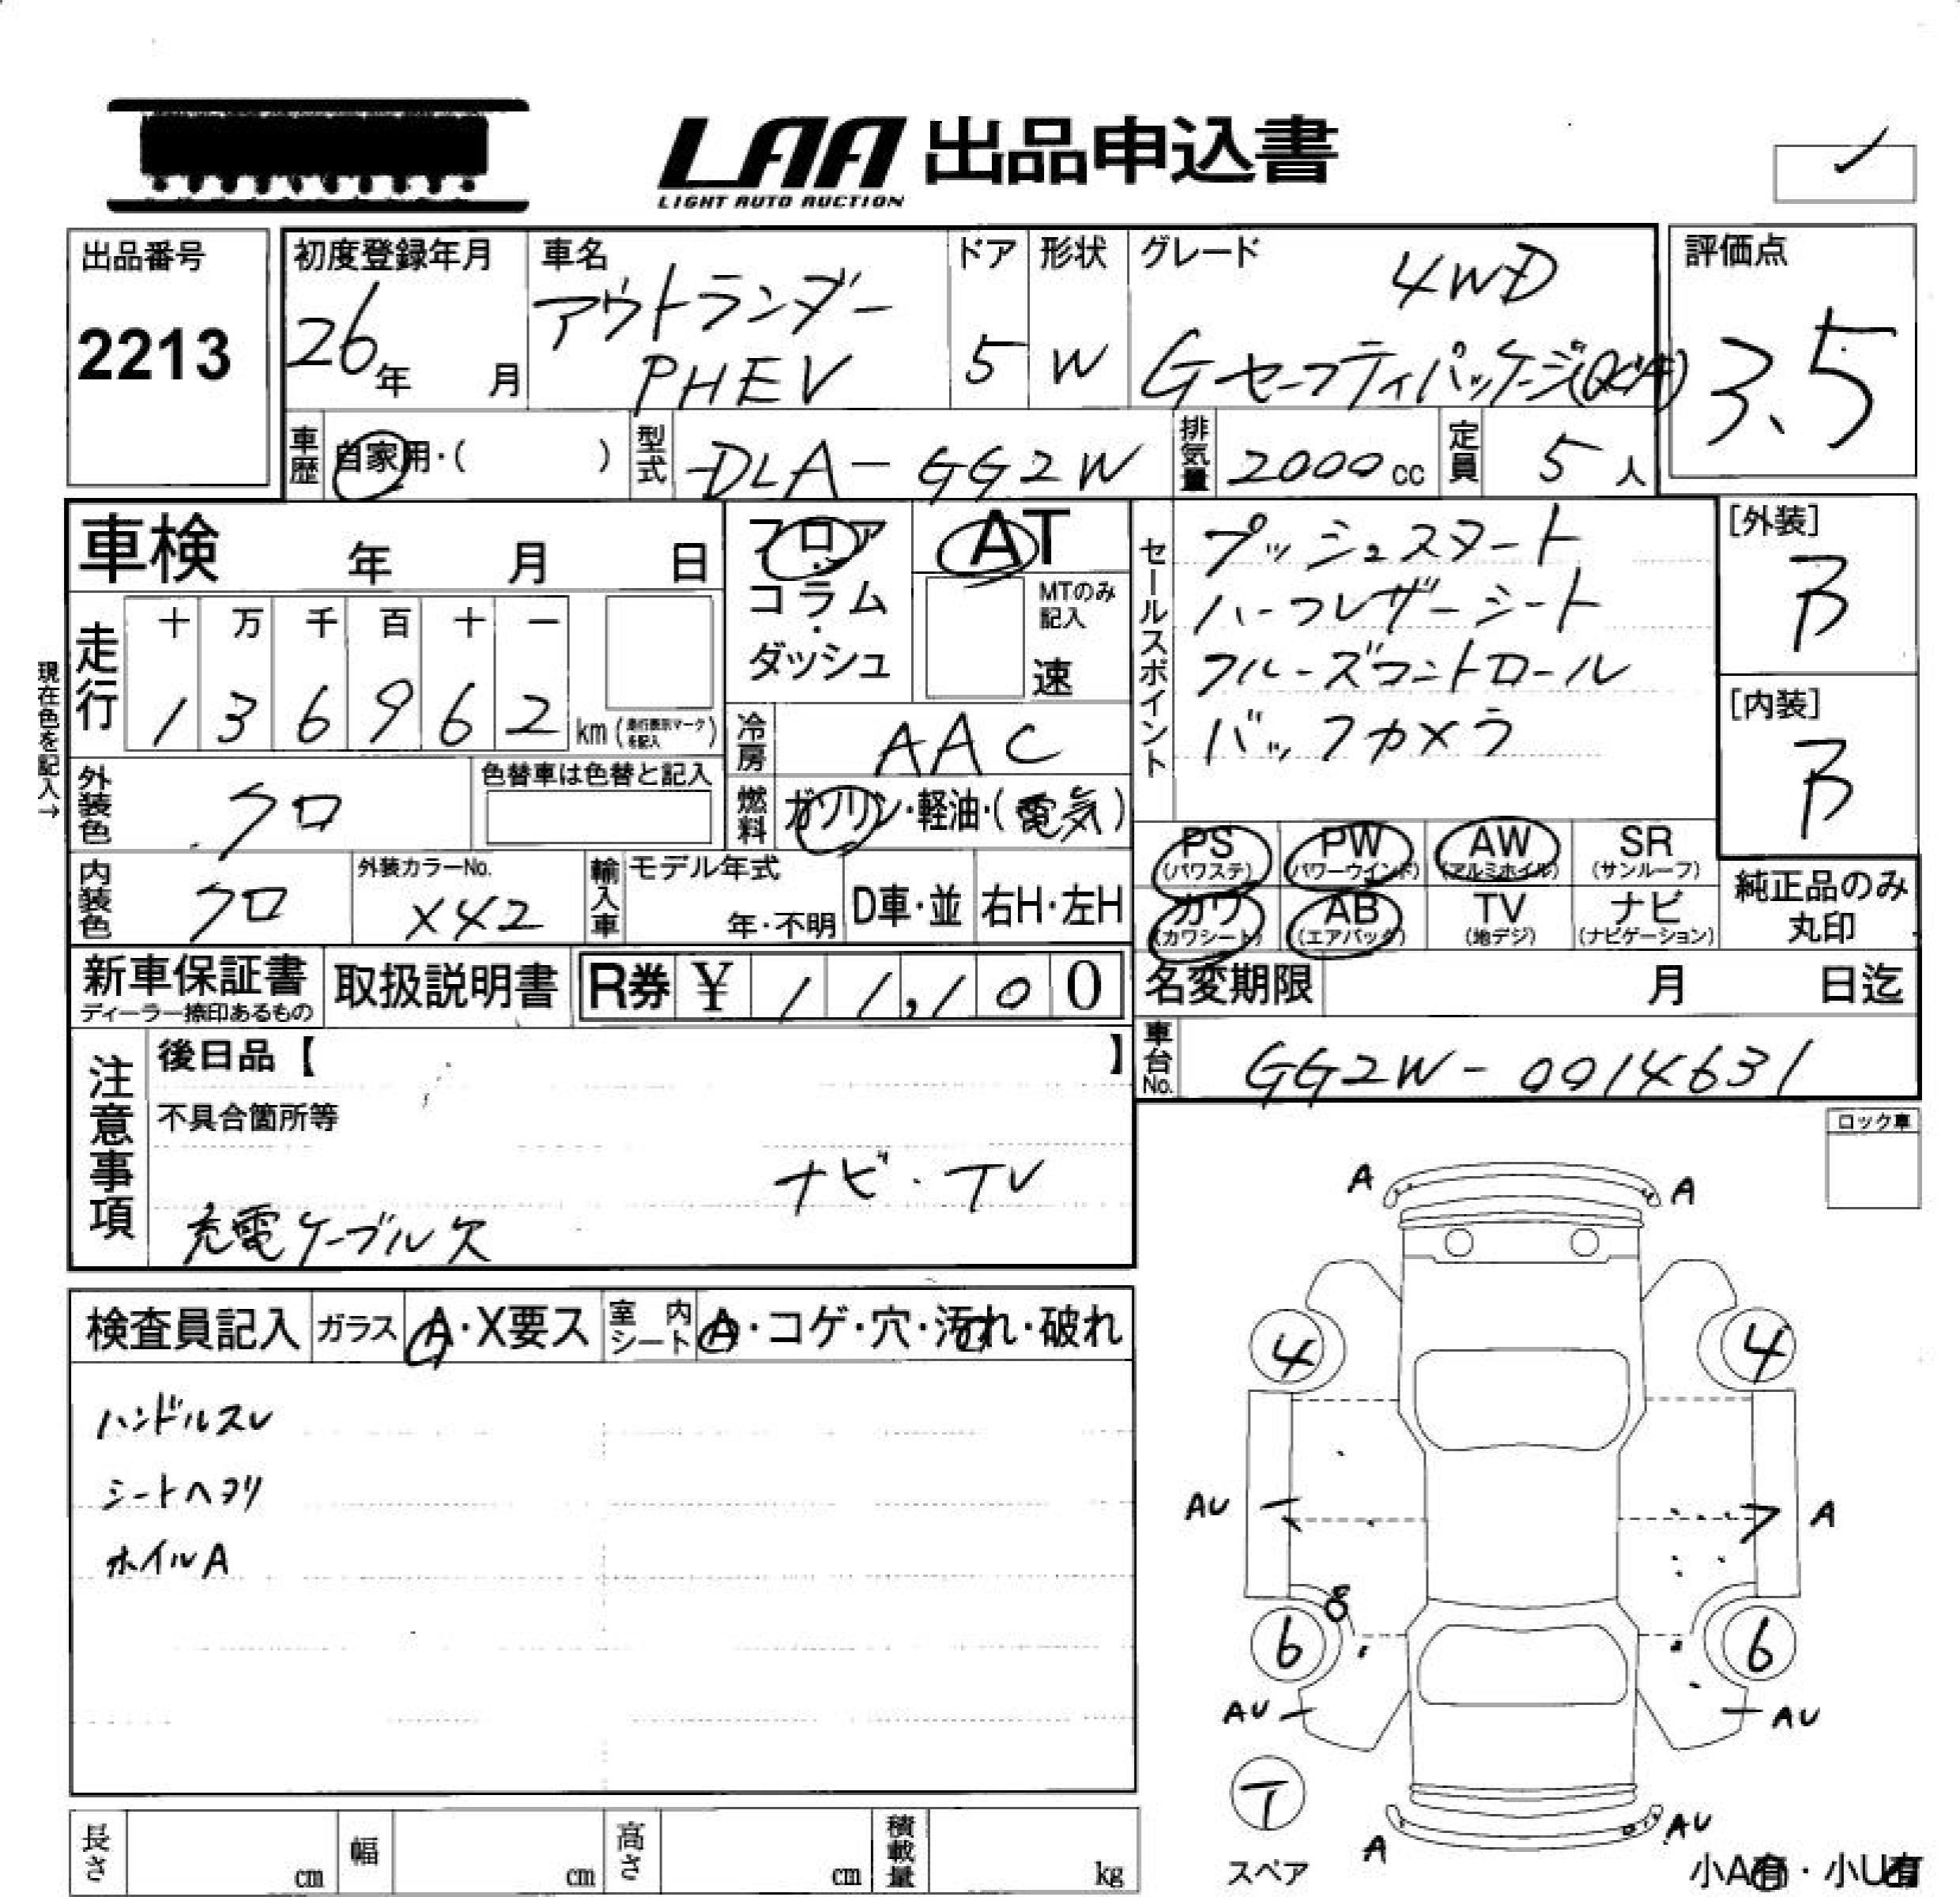 LAA 出品申込書
LIGHT AUTO AUCTION
出品番号
2213
初度登録年月
26年 月
車名
アウトランダー
PHEV
ドア
5
形状
W
グレード
4WD
Gセーフティパッケージ
評価点
3.5
車歴 自家用・( )
型式 DLA-GG2W
排気量 2000cc
定員 5人
車検 年 月 日
フロア・コラム・ダッシュ
AT
MTのみ記入
速
セールスポイント
プッシュスタート
ハーフレザーシート
クルーズコントロール
バックカメラ
[外装]
B
[内装]
B
現在色を記入→
走行 十 万 千 百 十 一
1 3 6 9 6 2 km
冷房 AAC
外装色 クロ
色替車は色替と記入
燃料 ガソリン・軽油・(電気)
PS (パワステ) PW (パワーウインド) AW (アルミホイル) SR (サンルーフ)
カワ (カワシート) AB (エアバック) TV (地デジ) ナビ (ナビゲーション)
純正品のみ丸印
内装色 クロ
外装カラーNo. X42
輸入車 モデル年式 年・不明 D車・並 右H・左H
新車保証書 ディーラー捺印あるもの
取扱説明書
R券 ¥11,100
名変期限 月 日迄
車台No. GG2W-0014631
注意事項
後日品【 】
不具合箇所等
ナビ・TV
充電ケーブル欠
ロック車
検査員記入 ガラス A・X要ス 室内シート A・コゲ・穴・汚れ・破れ
ハンドルスレ
シートヘタリ
ホイルA
A A
4 4
AU A
8
6 6
AU AU
T
スペア
A AU
小A有・小U有
長さ cm 幅 cm 高さ cm 積載量 kg